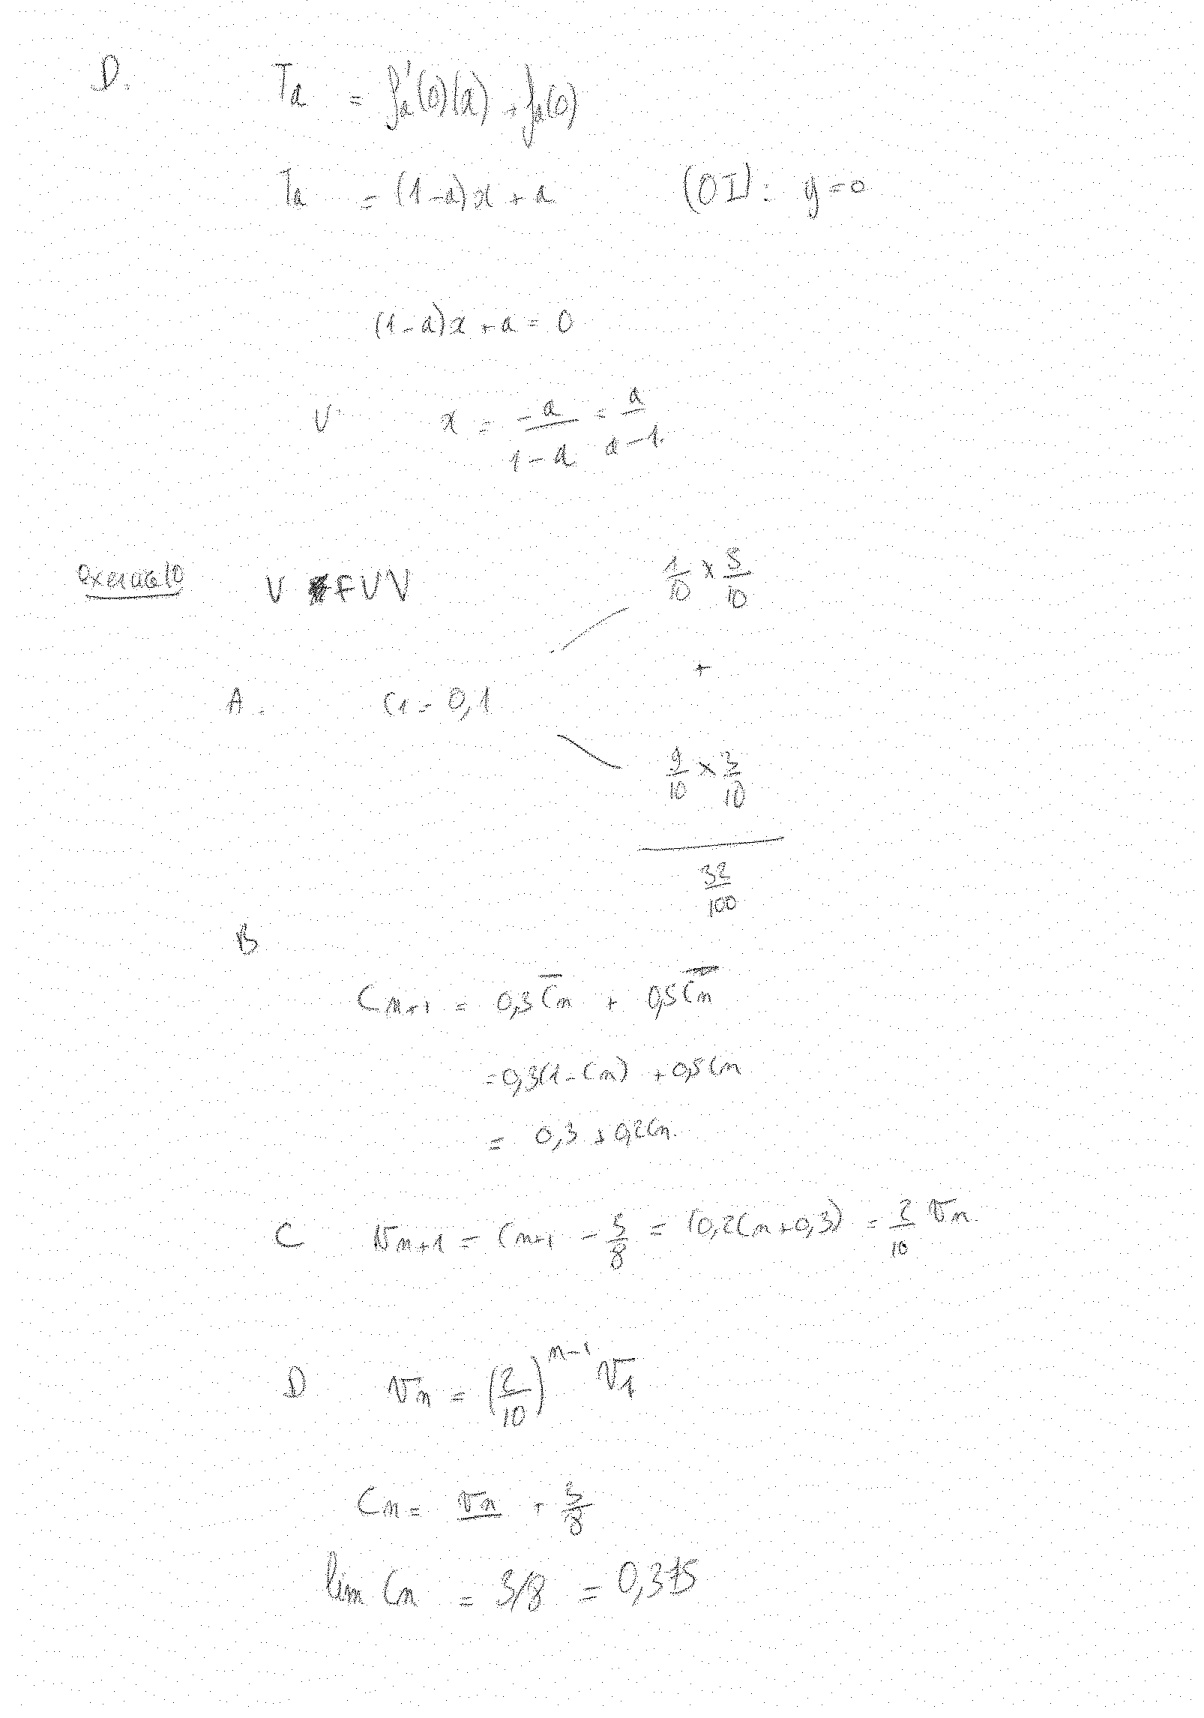 D. Ta = fa'(0)(x) + fa(0)
Ta = (1-a)x + a (OI): y=0
(1-a)x + a = 0
V x = -a/(1-a) = a/(a-1)
V F V V
1/10 × 5/10
+
A. C1 = 0,1
9/10 × 3/10
32/100
B
Cn+1 = 0,3 C̅n + 0,5 Cn
= 0,3(1-Cn) + 0,5Cn
= 0,3 + 0,2Cn
C Vn+1 = Cn+1 - 3/8 = (0,2Cn+0,3) = 2/10 Vn
D Vn = (2/10)^(n-1) V1
Cn = Vn + 3/8
lim Cn = 3/8 = 0,375